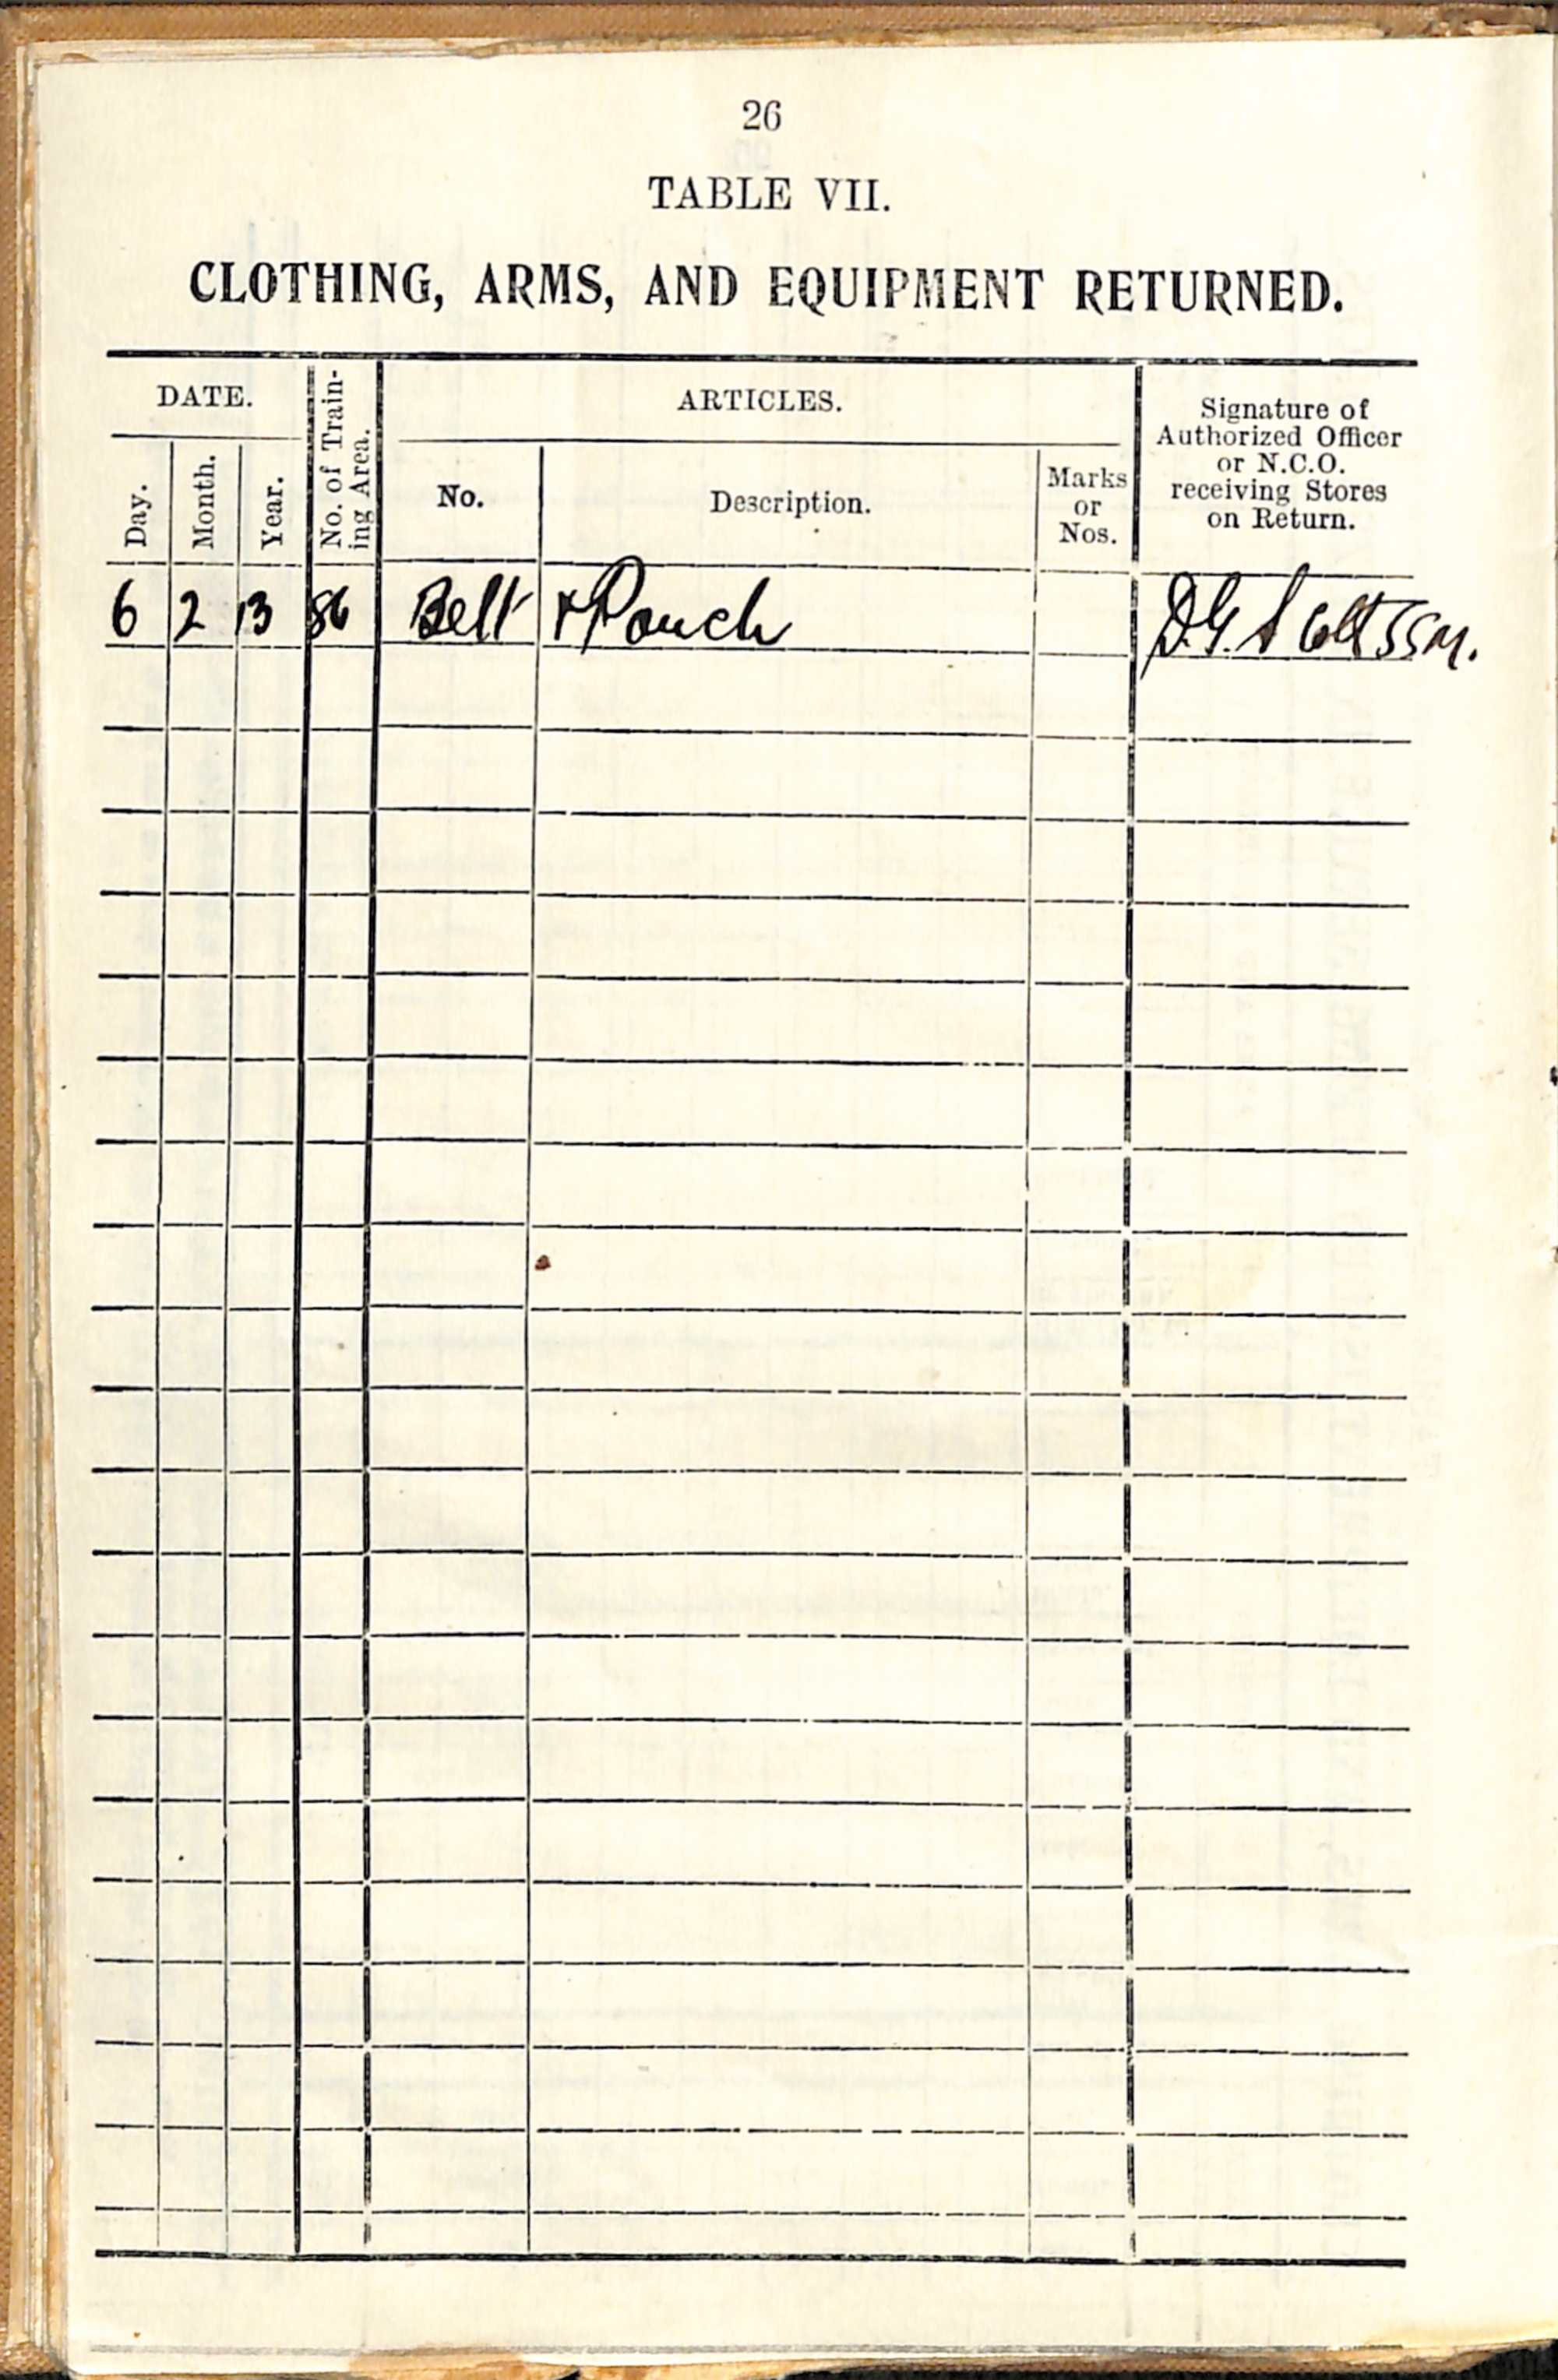 26
TABLE VII.
CLOTHING, ARMS, AND EQUIPMENT RETURNED.
DATE.
Day.
Month.
Year.
No. of Train-
ing Area.
ARTICLES.
No.
Description.
Marks
or
Nos.
Signature of
Authorized Officer
or N.C.O.
receiving Stores
on Return.
6 2 13 86 Belt & Pouch D.G. Scott SSM.